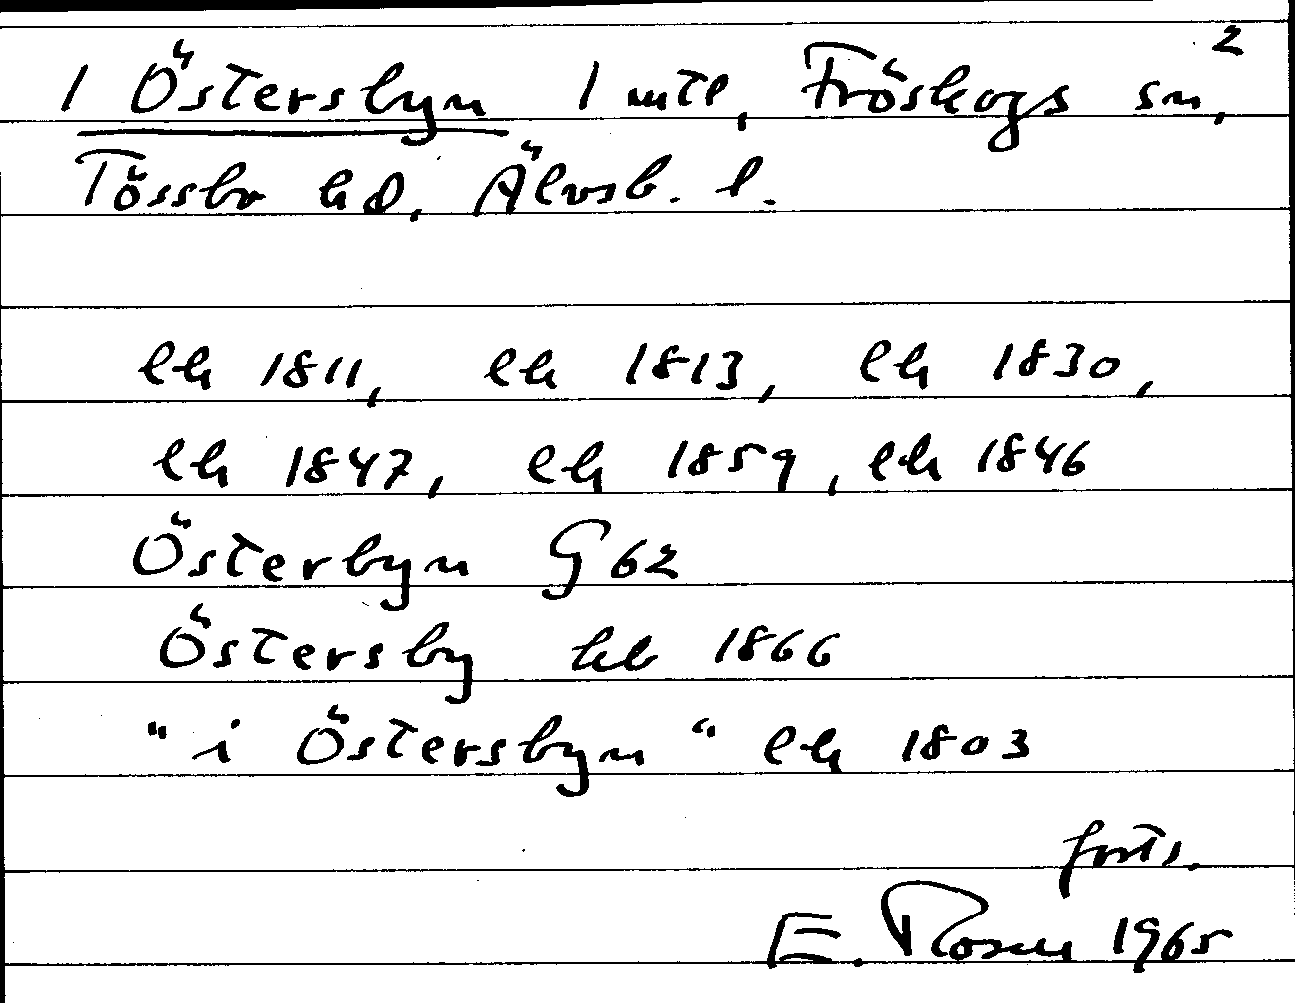 2
1 Östersbyn 1 mtl, Fröskogs sn,
Tössbo hd, Älvsb. l.
lh 1811, lh 1813, lh 1830,
lh 1847, lh 1859, lh 1846
Österbyn G 62
Östersby hb 1866
"i Östersbyn" lh 1803
forts.
E. Rosen 1965